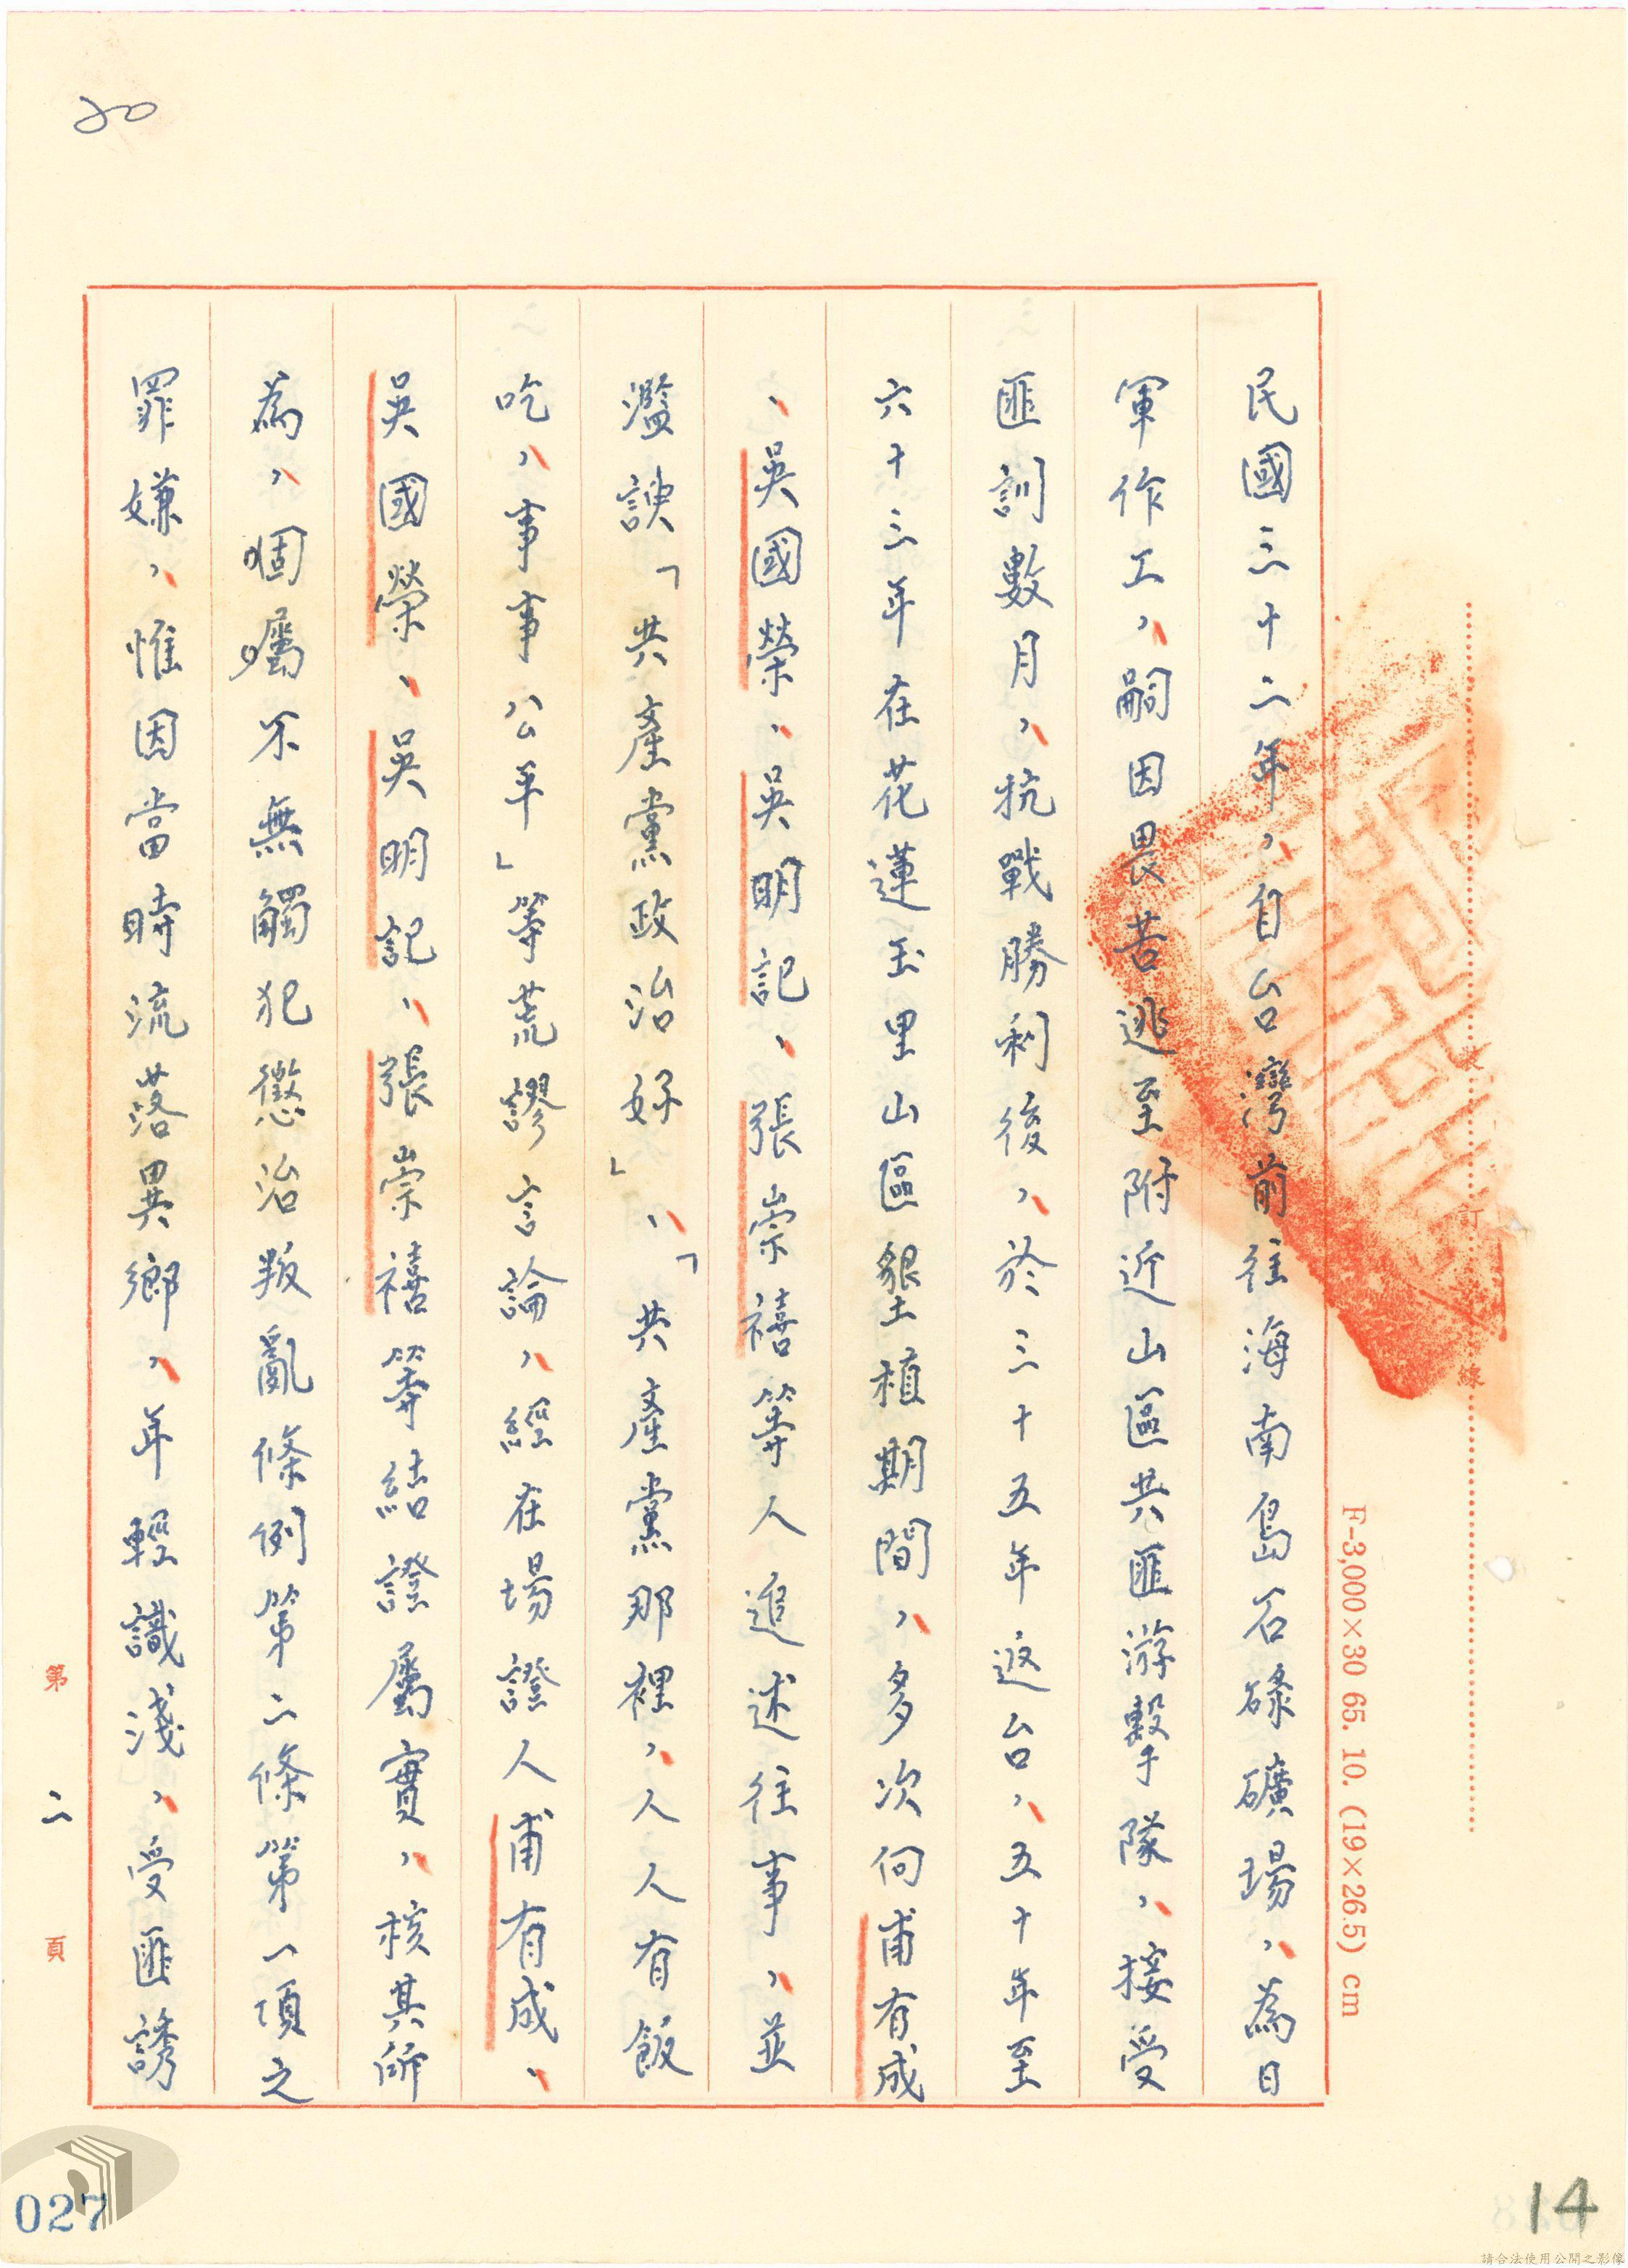 民國三十二年，自台灣前往海南島石碌礦場，為日
軍作工，嗣因畏苦逃至附近山區共匪游擊隊，接受
匪訓數月，抗戰勝利後，於三十五年返台，五十年至
六十三年在花蓮玉里山區墾植期間，多次向甫有成
、吳國榮、吳明記、張崇禧等人追述往事，並
濫諛「共產黨政治好」、「共產黨那裡，人人有飯
吃，事事公平」等荒謬言論，經在場證人甫有成、
吳國榮、吳明記、張崇禧等結證屬實，核其所
為，固屬不無觸犯懲治叛亂條例第二條第一項之
罪嫌，惟因當時流落異鄉，年輕識淺，受匪誘
訂
線
F-3,000×30 65. 10. (19×26.5) cm
第二頁
20
027
14
請合法使用公開之影像